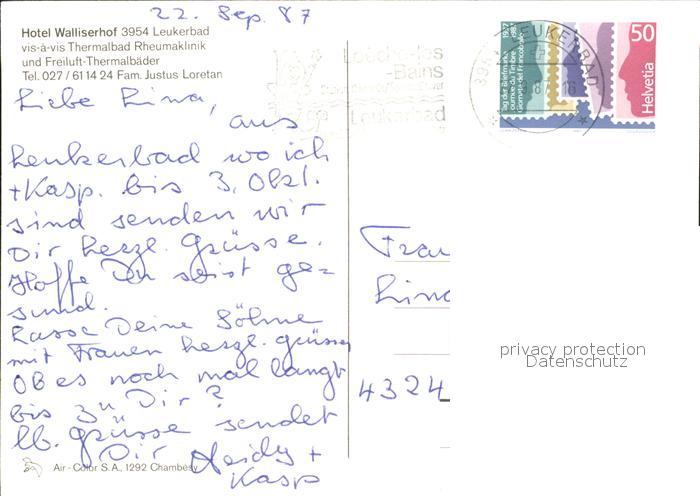 22. Sep. 87
Hotel Walliserhof 3954 Leukerbad
vis-à-vis Thermalbad Rheumaklinik
und Freiluft-Thermalbäder
Tel. 027 / 61 14 24 Fam. Justus Loretan
Liebe Lina,
aus
Leukerbad wo ich
+ Kasp. bis 3. Okt.
sind senden wir
Dir herzl. Grüsse.
Hoffe Du seist ge=
sund.
Lasse Deine Söhne
mit Frauen herzl. grüssen
OB es noch mal langt
bis zu Dir?
lb. Grüsse sendet
Dir Heidy +
Kasp
Air-Color S.A., 1292 Chambésy
Loèche-les
-Bains
Leukerbad
LEUKERBAD
Tag der Briefmarke 1937
Journée du Timbre 1987
Giornata del Francobollo
50
Helvetia
Frau
Lina
4324
privacy protection
Datenschutz